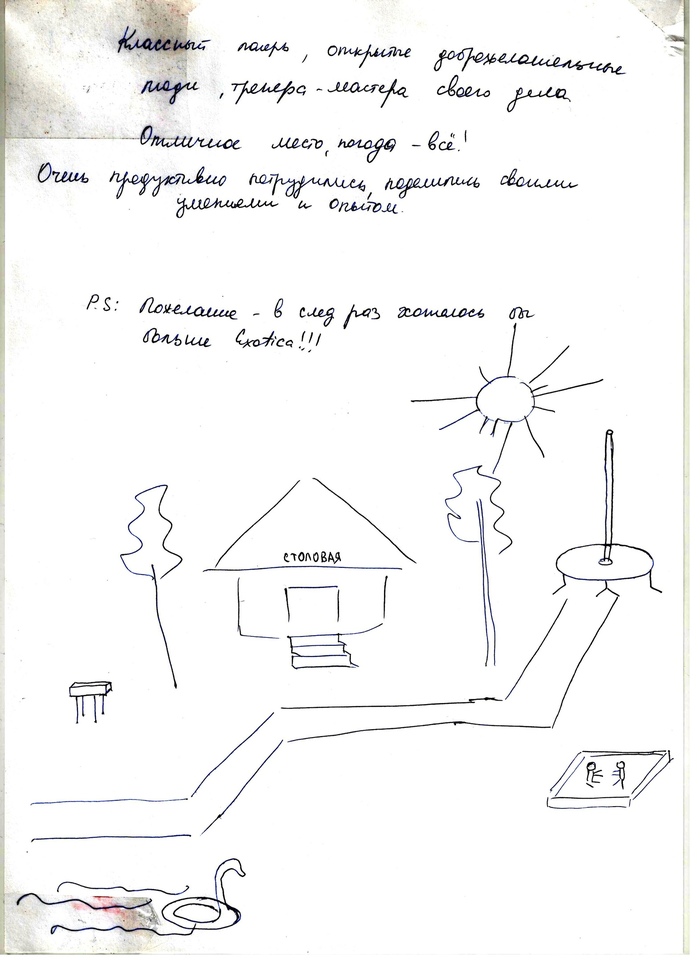 Классный лагерь, открытые доброжелательные
люди, тренера - мастера своего дела
Отличное место, погода - всё!
Очень продуктивно потрудились, поделились своими
умениями и опытом.
P.S: Пожелание - в след раз хотелось бы
больше Exotica!!!
СТОЛОВАЯ